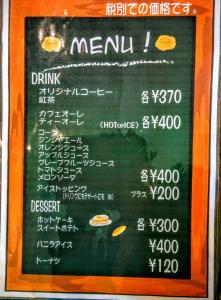 税別での価格です。
MENU!
DRINK
オリジナルコーヒー
紅茶 各¥370
カフェオーレ
ティーオーレ (HOTorICE) 各¥400
コーラ
ジンジャエール
オレンジジュース
アップルジュース
グレープフルーツジュース
トマトジュース
メロンソーダ 各¥400
アイストッピング プラス ¥200
DESSERT
ホットケーキ
スイートポテト 各¥300
バニラアイス ¥400
ドーナツ ¥120